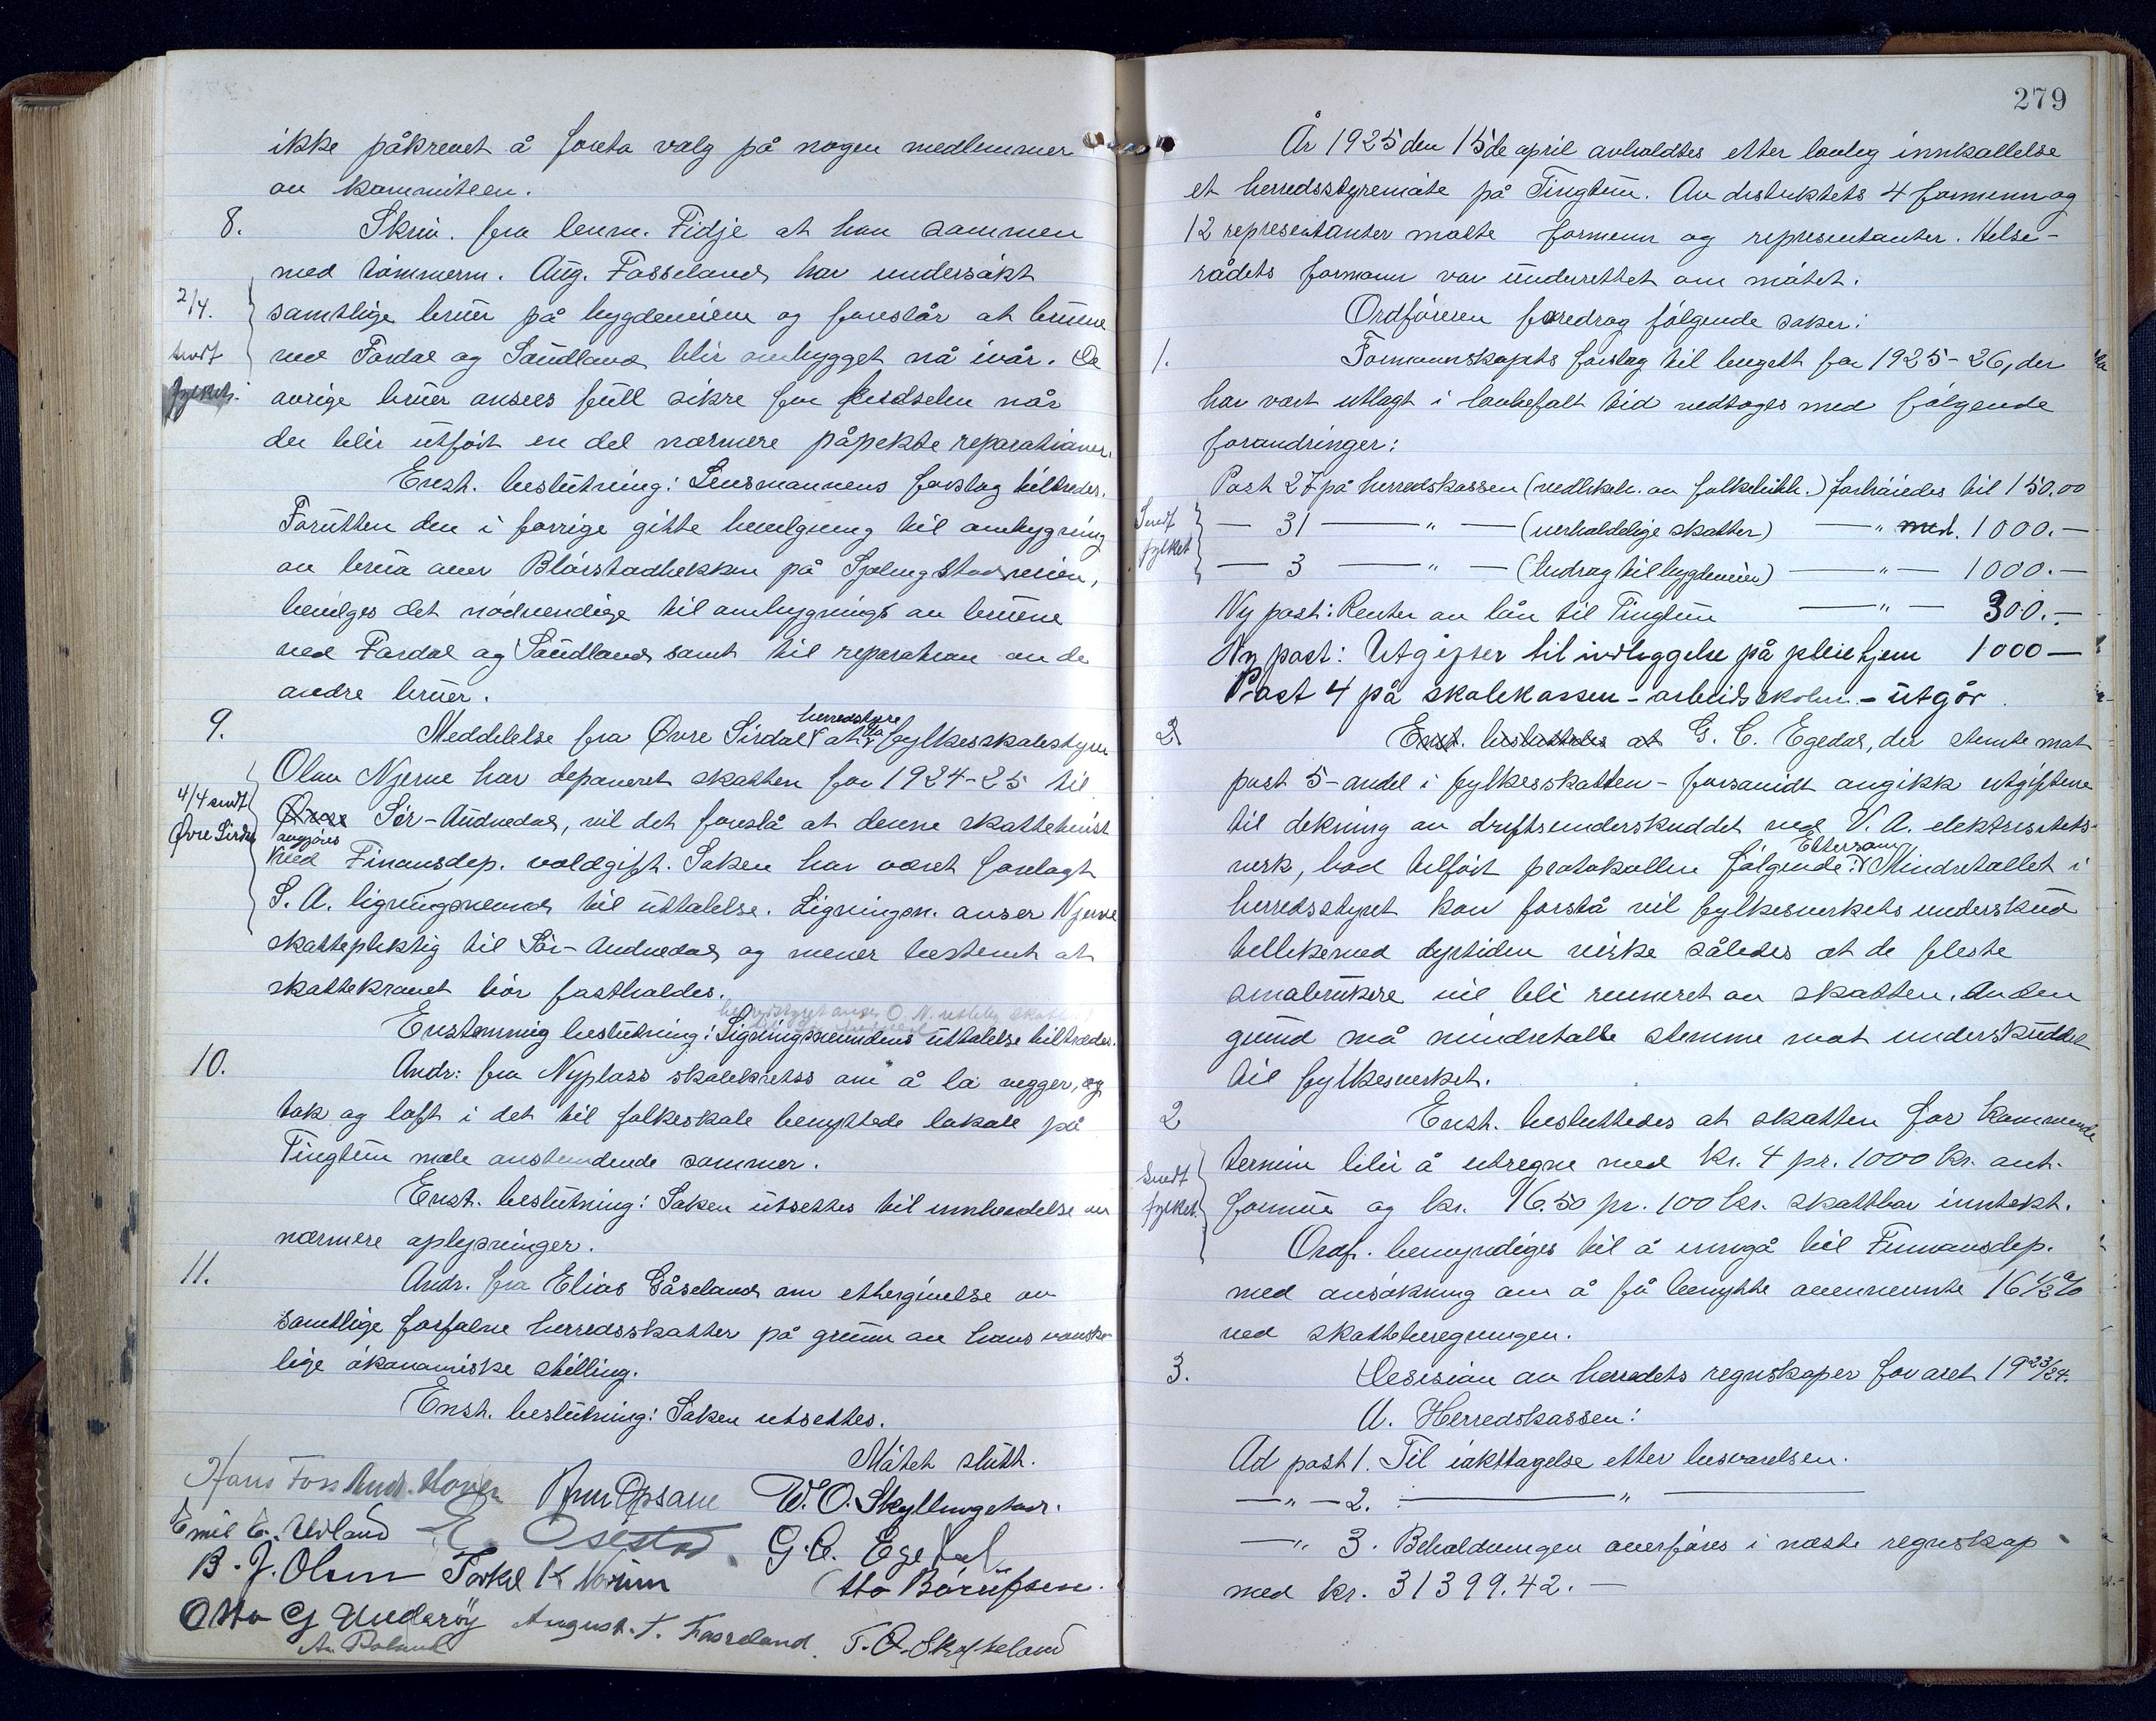 ikke påkrevet å foreta valg på nogen medlemmer
av kommiteen.
8. Skriv. fra lensm. Fidje at han sammen
med tømmerm. Aug. Fasseland har undersøkt
2/4. samtlige bruer på bygdeveiene og foreslår at bruene
sendt ved Fardal og Saudland blir ombygget nå ivår. De
fylket. øvrige bruer ansees full sikre for ferdselen når
der blir utført en del nærmere påpekte reparationer.
Enst. beslutning: Lensmannens forslag tiltredes.
Forutten den i forrige gitte bevilgning til ombygning
av brua over Blørstadbekken på Spilling veien,
bevilges det nødvendige til ombygning av bruene
ved Fardal og Saudland samt til reparation av de
andre bruer.
9. Meddelelse fra Øvre Sirdal herredstyre at da fylkesskattestyre
Olav Njerve har deponeret skatten for 1924-25 til
4/4 sendt Øvre Sør-Audnedal, vil det foreslå at denne skattetvist
Øvre Sirdal avgjøres ved Finansdep. voldgift. Saken har været forelagt
S. A. ligningsnevnd til uttalelse. Ligningsn. anser Njerve
skattepliktig til Sør-Audnedal og mener bestemt at
skattekravet bør fastholdes.
herredstyret anser O. N. skatt
Enstemmig beslutning: Ligningsnevndens uttalelse tiltredes.
10. Andr: fra Nyplass skolekretss om å la vegger, og
tak og loft i det til folkeskole benyttede lokale på
Tingtun male anstundende sommer.
Enst. beslutning: Saken utsettes til innhendelse av
nærmere oplysninger.
11. Andr. fra Elias Gåseland om ettergivelse av
samtlige forfalne herredsskatter på grunn av hans vanske-
lige økonomiske stilling.
Enst. beslutning: Saken utsettes.
Møtet slutt.
Hans Foss Andr. Opsane W. O. Skyllingstad.
Emil E. Udland Osestad G. C. Egedal
B. J. Olsen Torkel K Otto Bårufsen.
Otto G Underøy August. T. Fasseland. T. O. Skofteland
279
År 1925 den 15de april avholdtes etter lovlig innkallelse
et herredsstyremøte på Tingtun. Av distriktets 4 formenn og
12 representanter møtte formenn og representanter. Helse-
rådets formann var underettet om møtet.
Ordføreren foredrog følgende saker:
1. Formannskapets forslag til bugett for 1925-26, der
har vært utlagt i lovbefalt tid vedtoges med følgende
forandringer:
Post 27 på herredskassen (vedlikeh. av folkebibl.) forhøiedes til 150,00
Sendt — 31 — " — (uerholdelige skatter) — " med. 1000.—
fylket — 3 — " — (bidrag til bygdeveier) — " — 1000.—
Ny post: Renter av lån til Tingtun — " — 300.—
Ny post: Utgifter til indleggelse på pleiehjem 1000—
Post 4 på skolekassen - arbeidsskolen - utgår.
2 Enst. besluttedes at G. C. Egedal, der stemte mot
post 5 - andel i fylkesskatten - forsåvidt angikk utgiftene
til dekning av driftsunderskuddet ved V. A. elektrisitets-
verk, bad tilført protokollen følgende: Ettersom Mindretallet i
herredsstyret kan forstå vil fylkesverkets underskud
tillikemed dyrtiden virke således at de fleste
småbrukere vil bli ruineret av skatten. Av den
grund må mindretallet stemme mot underskuddet
til fylkesverket.
2 Enst. besluttedes at skatten for kommende
Sendt termin blir å utregne med kr. 4 pr. 1000 kr. ant.
fylket. formue og kr. 16.50 pr. 100 kr. skattbar inntekt.
Ordf. bemyndiges til å inngå til Finansdep.
med ansøkning om å få benytte ovennevnte 16 1/2 %
ved skatteberegningen.
3. Desision av herredets regnskaper for året 1923/24.
A. Herredskassen:
Ad post 1. Til iakttagelse etter besvarelsen.
— " — 2. — " —
— " 3. Beholdningen overføres i næste regnskap
med kr. 31399.42.—